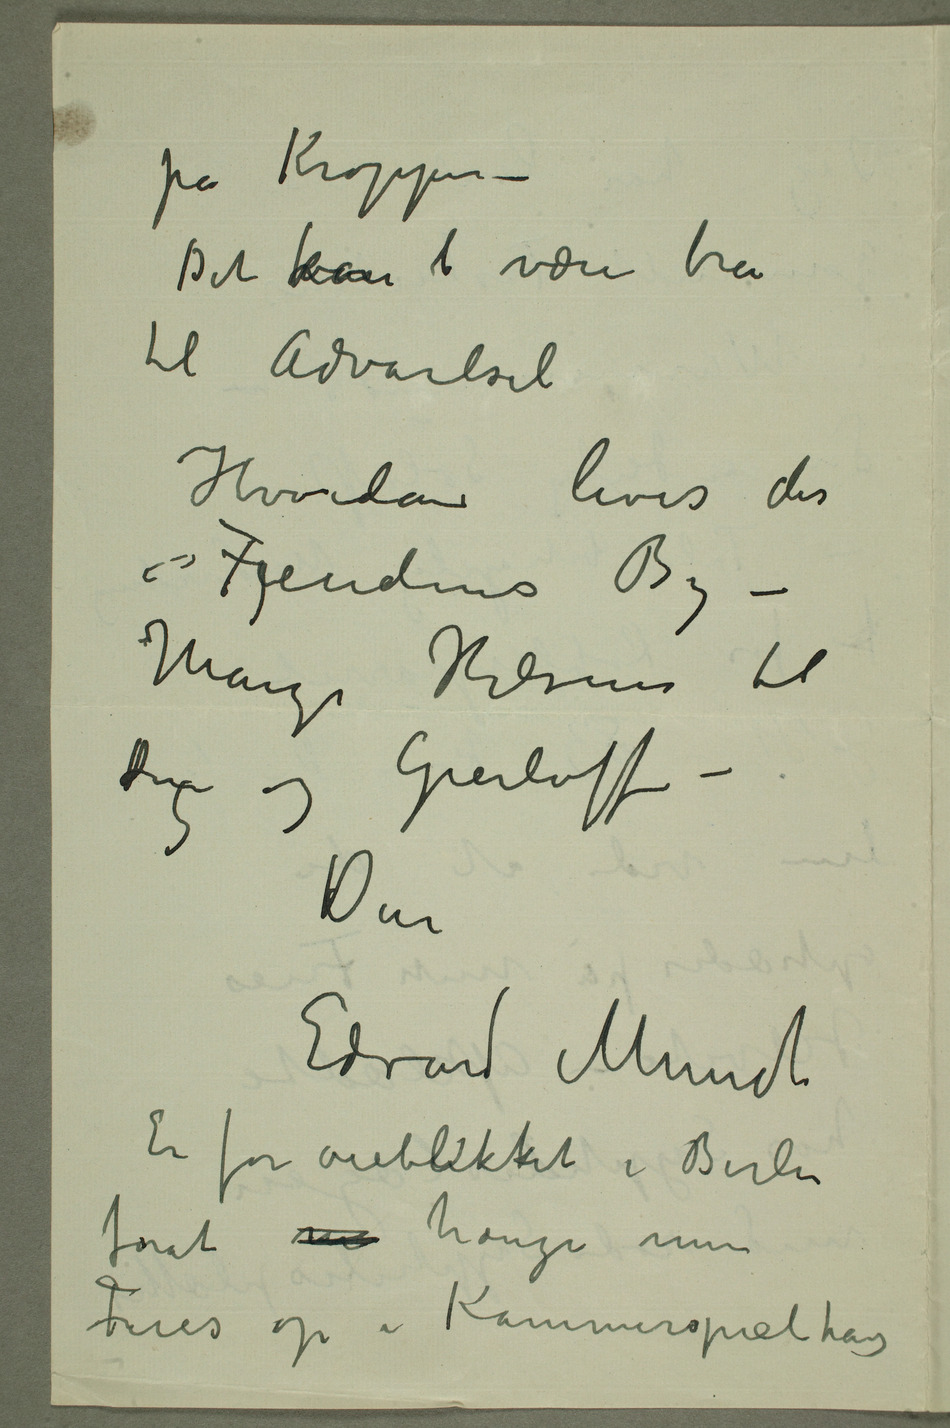 på Kroppen –
Det kan b være bra
til Advarlsel
Hvordan leves der
i Fjendens By –
Mange Hilsener til
Dig og Gierløff –
Din
Edvard Munch
Er for øieblikket i Berlin
forat hænge min
Fries op i Kammerspielhaus